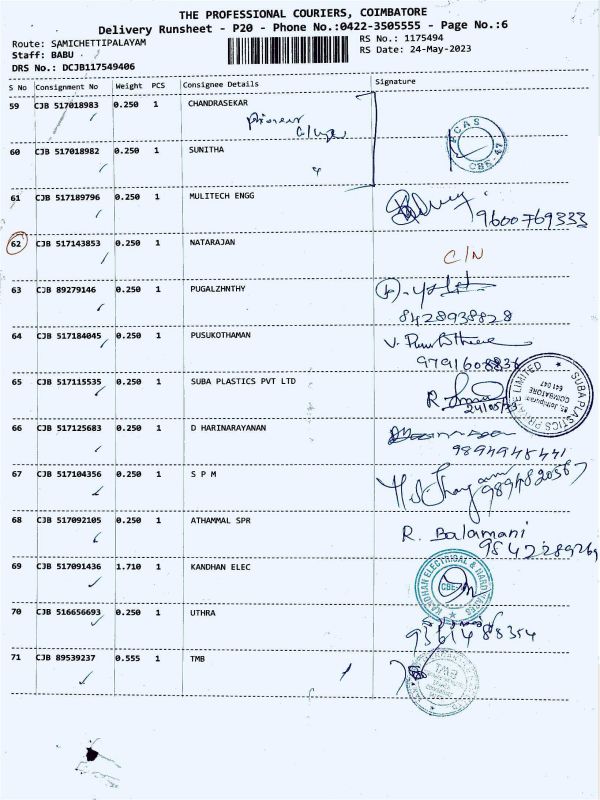 THE PROFESSIONAL COURIERS, COIMBATORE
Delivery Runsheet - P20 - Phone No.:0422-3505555 - Page No.:6
Route: SAMICHETTIPALAYAM
RS No.: 1175494
Staff: BABU
RS Date: 24-May-2023
DRS No.: DCJB117549406
S No Consignment No Weight PCS Consignee Details Signature
59 CJB 517018983 0.250 1 CHANDRASEKAR
60 CJB 517018982 0.250 1 SUNITHA
61 CJB 517189796 0.250 1 MULITECH ENGG
9600769333
62 CJB 517143853 0.250 1 NATARAJAN
C/N
63 CJB 89279146 0.250 1 PUGALZHNTHY
8428938828
64 CJB 517184045 0.250 1 PUSUKOTHAMAN
9791608836
65 CJB 517115535 0.250 1 SUBA PLASTICS PVT LTD
R
24/05/23
SUBA PLASTICS PRIVATE LIMITED
COIMBATORE
641 047
66 CJB 517125683 0.250 1 D HARINARAYANAN
9894948441
67 CJB 517104356 0.250 1 S P M
9894820587
68 CJB 517092105 0.250 1 ATHAMMAL SPR
R. Balamani
9842289269
69 CJB 517091436 1.710 1 KANDHAN ELEC
KANDHAN ELECTRICAL & HARDWARES
CBE
70 CJB 516656693 0.250 1 UTHRA
9361488354
71 CJB 89539237 0.555 1 TMB